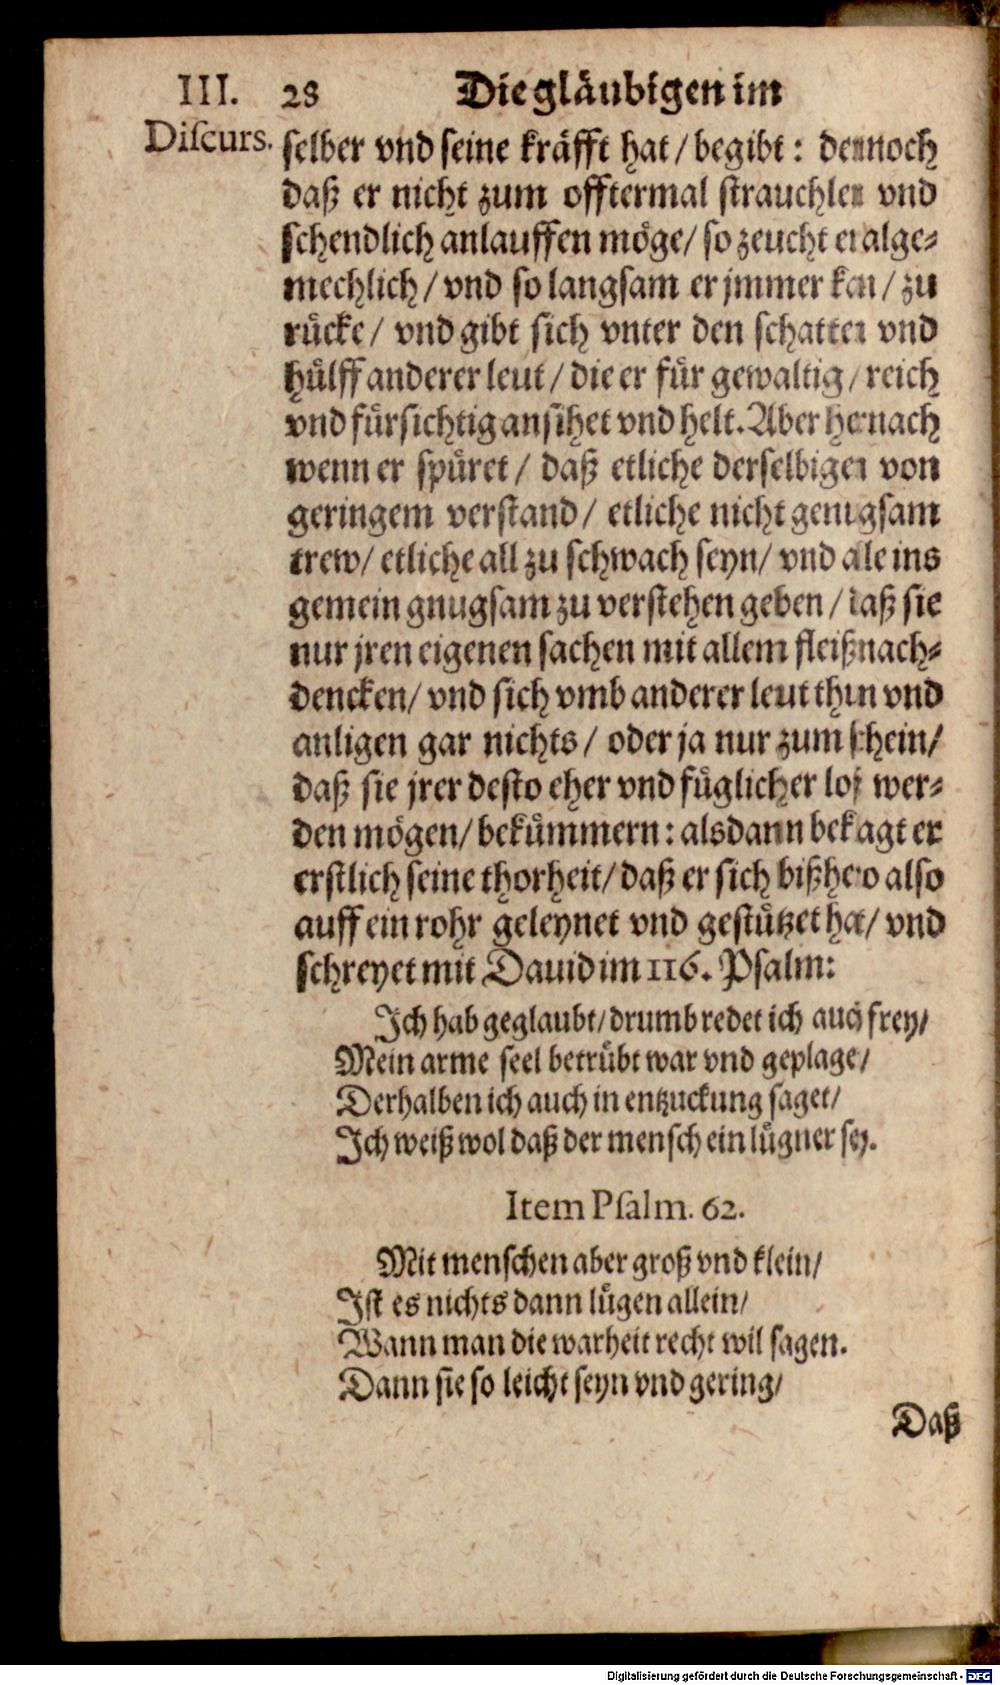 III. 28 Die gläubigen im
Discurs.
selber vnd seine kräfft hat / begibt: dennoch
daß er nicht zum offtermal strauchlen vnd
schendlich anlauffen möge / so zeucht er alge-
mechlich / vnd so langsam er jmmer kan / zu
rücke / vnd gibt sich vnter den schatten vnd
hülff anderer leut / die er für gewaltig / reich
vnd fürsichtig ansihet vnd helt. Aber hernach
wenn er spüret / daß etliche derselbigen von
geringem verstand / etliche nicht genugsam
trew / etliche all zu schwach seyn / vnd alle ins
gemein gnugsam zu verstehen geben / daß sie
nur jren eigenen sachen mit allem fleiß nach-
dencken / vnd sich vmb anderer leut thun vnd
anligen gar nichts / oder ja nur zum schein /
daß sie jrer desto eher vnd füglicher loß wer-
den mögen / bekümmern: alsdann beklagt er
erstlich seine thorheit / daß er sich bißhero also
auff ein rohr geleynet vnd gestützet hat / vnd
schreyet mit Dauid im 116. Psalm:
Ich hab geglaubt / drumb redet ich auch frey /
Mein arme seel betrübt war vnd geplage /
Derhalben ich auch in entzuckung saget /
Ich weiß wol daß der mensch ein lügner sey.
Item Psalm. 62.
Mit menschen aber groß vnd klein /
Ist es nichts dann lügen allein /
Wann man die warheit recht wil sagen.
Dann sie so leicht seyn vnd gering /
Daß
Digitalisierung gefördert durch die Deutsche Forschungsgemeinschaft - DFG